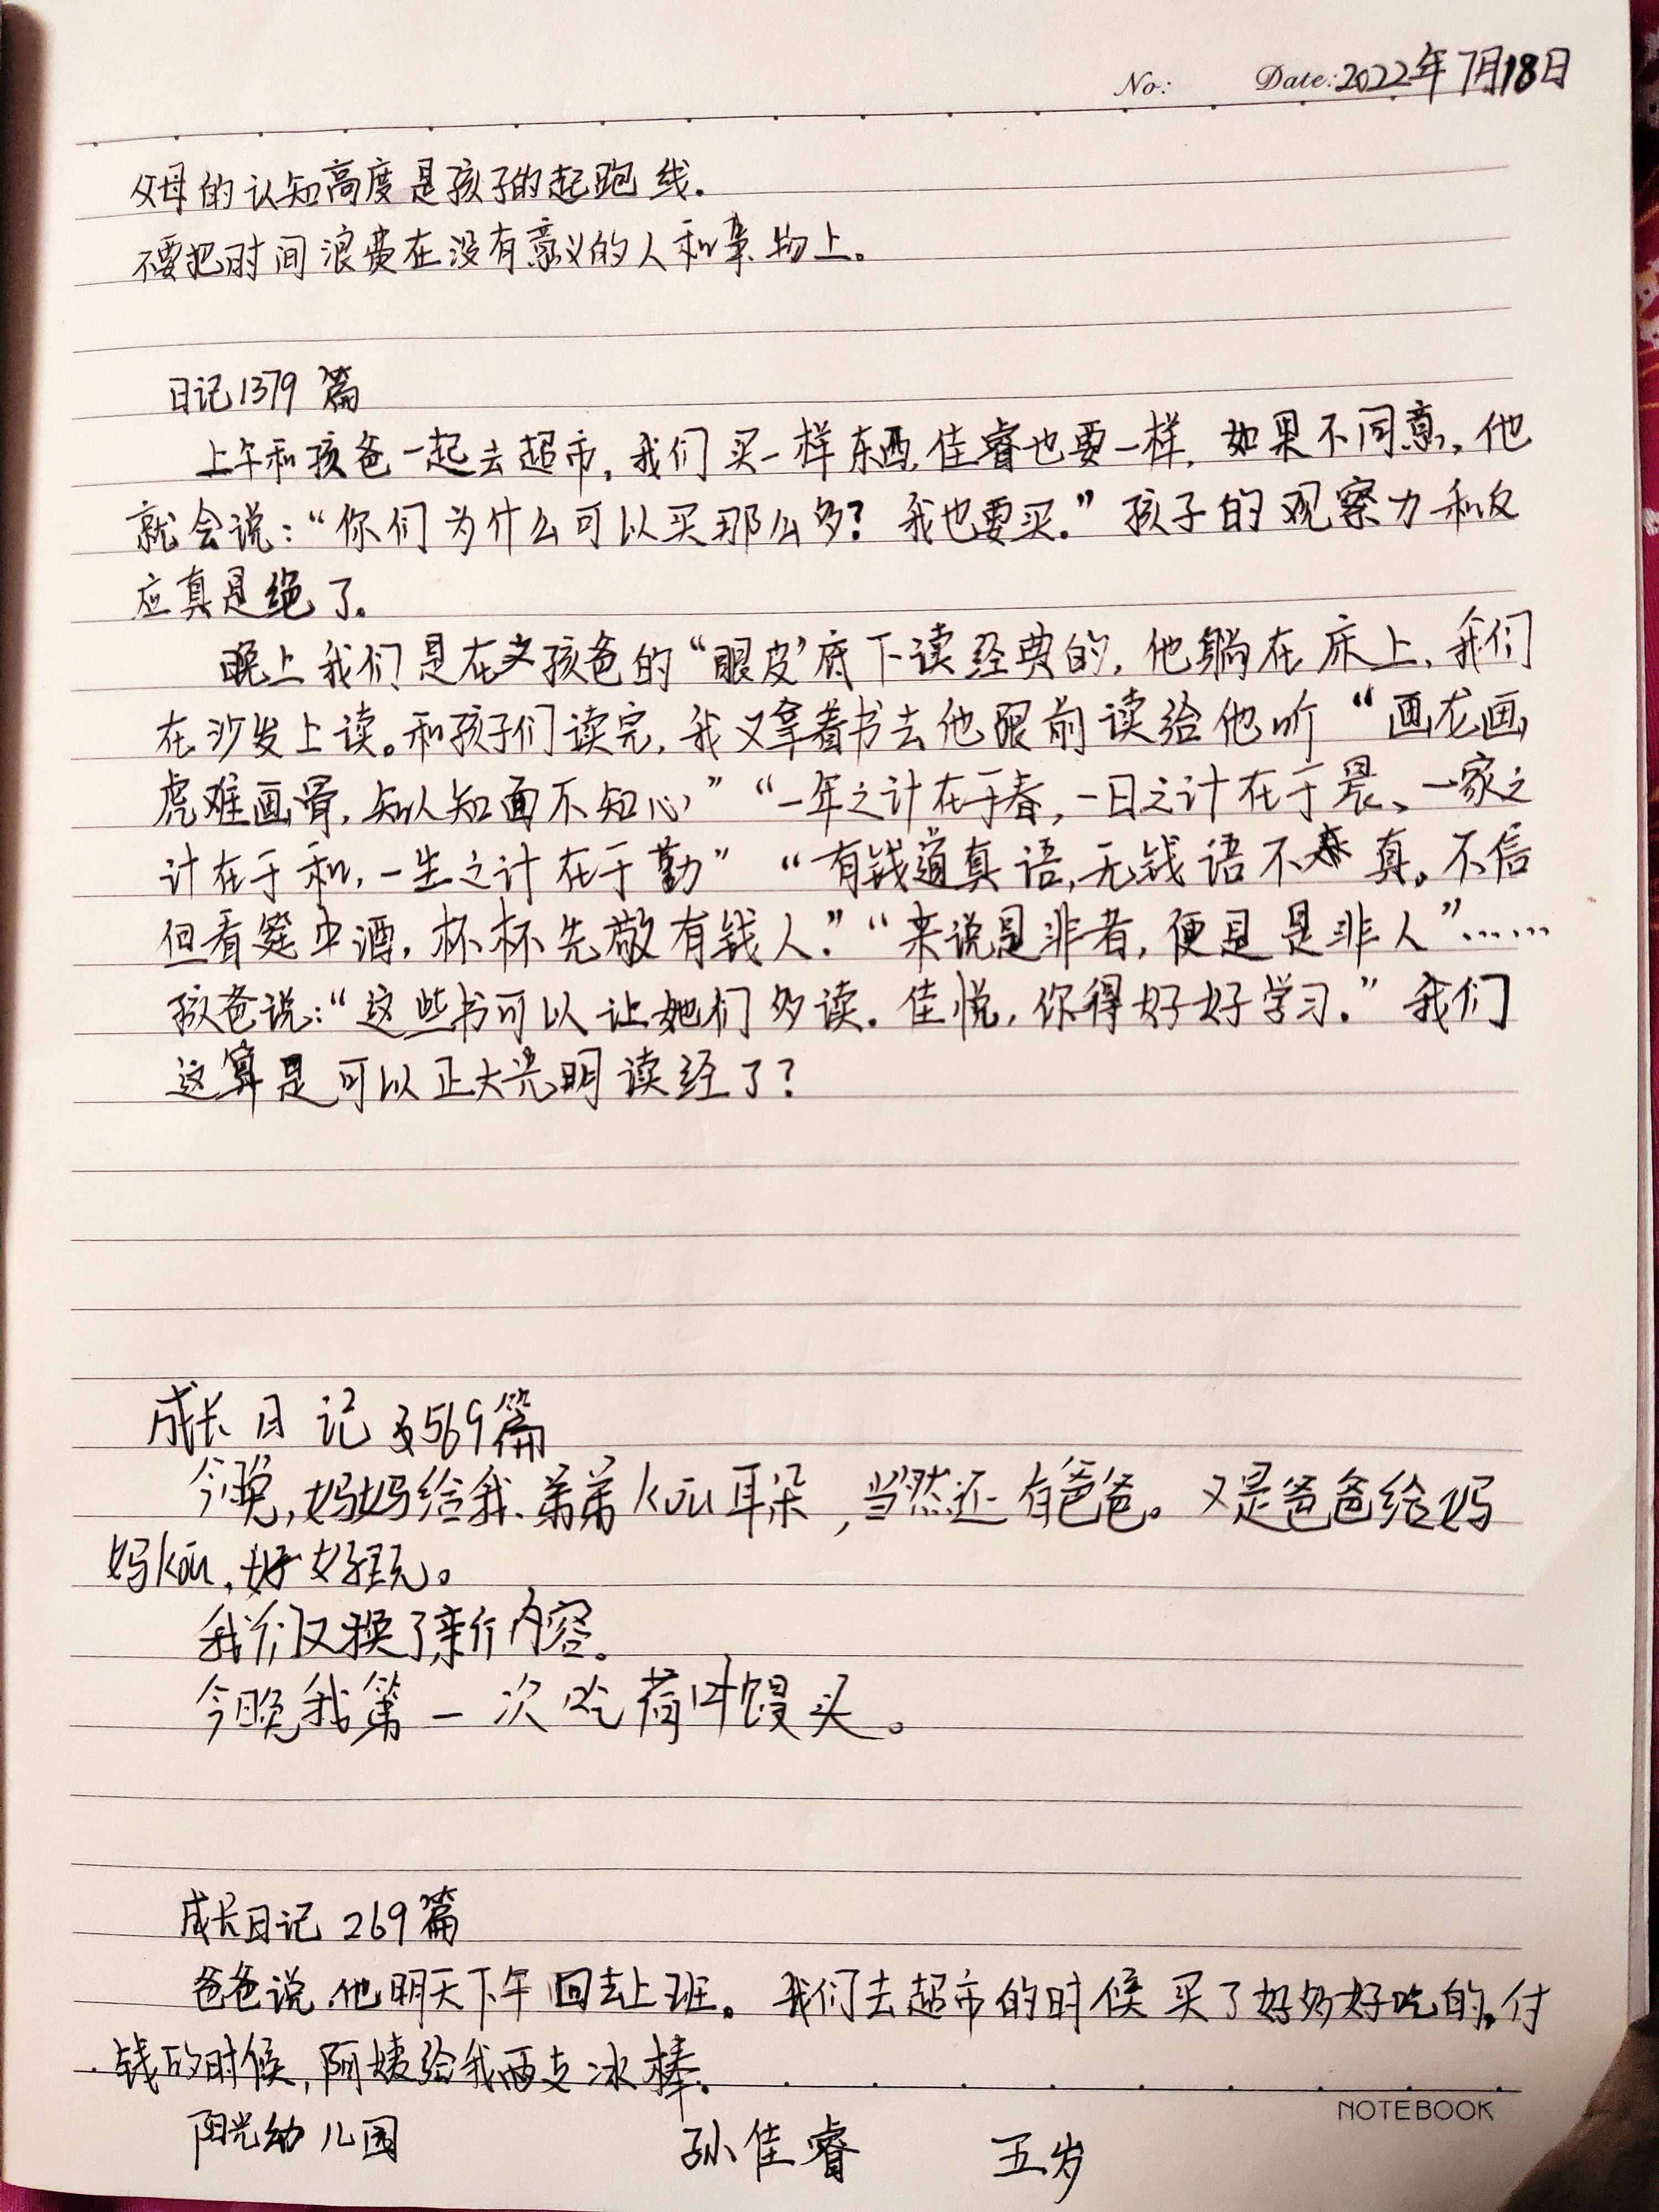 No: Date: 2022年7月18日
父母的认知高度是孩子的起跑线.
不要把时间浪费在没有意义的人和事物上。
日记1379篇
上午和孩爸一起去超市,我们买一样东西,佳睿也要一样,如果不同意,他
就会说:“你们为什么可以买那么多?我也要买.”孩子的观察力和反
应真是绝了.
晚上我们是在孩爸的“眼皮”底下读经典的,他躺在床上,我们
在沙发上读。和孩子们读完,我又拿着书去他跟前读给他听“画龙画
虎难画骨,知人知面不知心”“一年之计在于春,一日之计在于晨、一家之
计在于和,一生之计在于勤”“有钱道真语,无钱语不真。不信
但看筵中酒,杯杯先敬有钱人.”“来说是非者,便是是非人”……
孩爸说:“这些书可以让她们多读.佳悦,你得好好学习.”我们
这算是可以正大光明读经了?
成长日记569篇
今晚,妈妈给我、弟弟kōu耳朵,当然还有爸爸。又是爸爸给妈
妈kōu,好好玩。
我们又换了新内容。
今晚我第一次吃荷叶馒头。
成长日记269篇
爸爸说,他明天下午回去上班。我们去超市的时候买了好多好吃的.付
钱的时候,阿姨给我两支冰棒.
NOTEBOOK
阳光幼儿园 孙佳睿 五岁